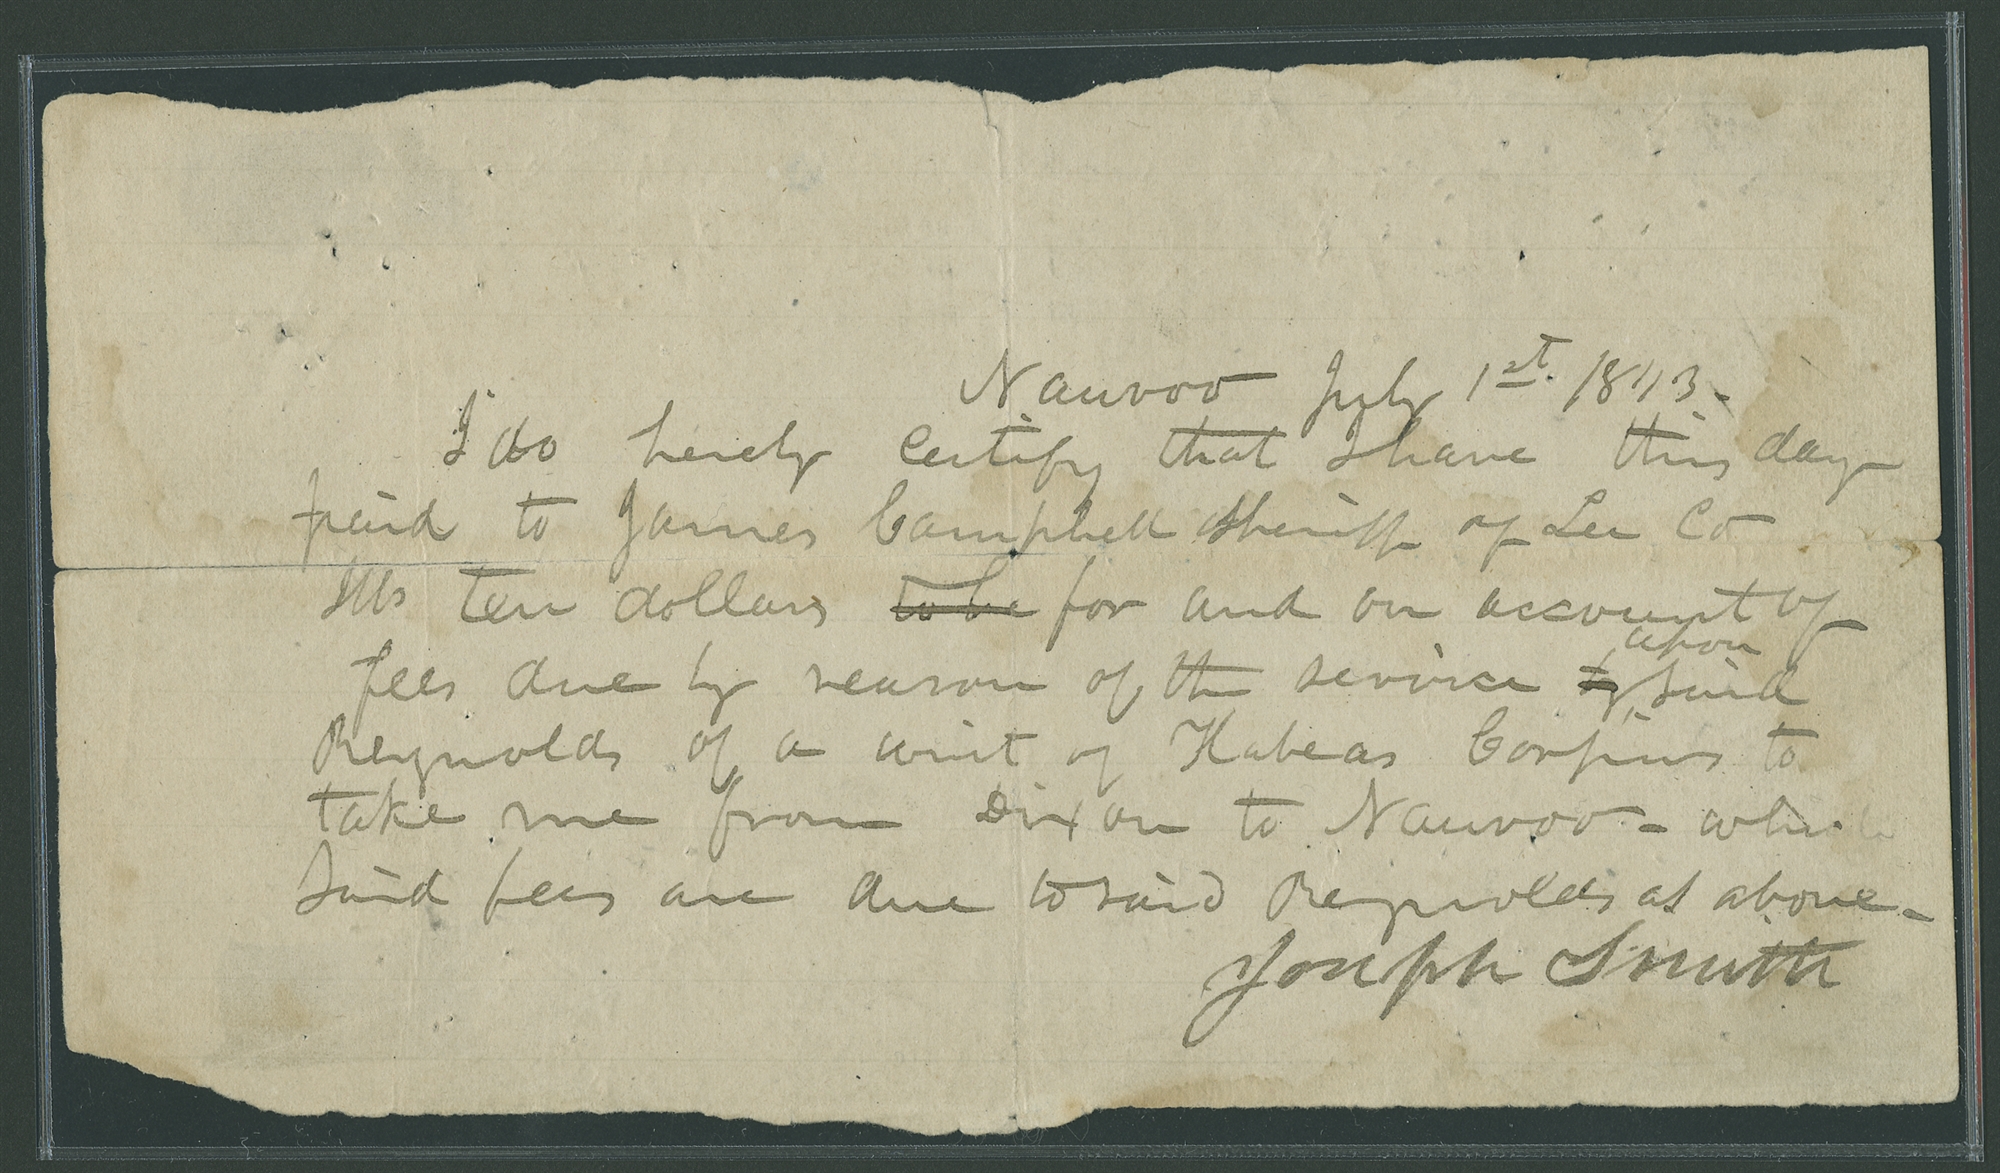 Nauvoo July 1st. 1843-
I do hereby certify that I have this day
paid to James Campbell Sheriff of Lee Co
Ills ten dollars to be for and on account of
upon
fees due by reason of the service by said
Reynolds of a writ of Habeas Corpus to
take me from Dixon to Nauvoo - which
said fees are due to said Reynolds as above -
Joseph Smith